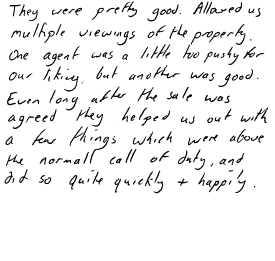 They were pretty good. Allowed us
multiple viewings of the property.
One agent was a little too pushy for
our liking, but another was good.
Even long after the sale was
agreed they helped us out with
a few things which were above
the normall call of duty, and
did so quite quickly + happily.